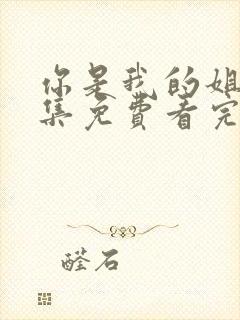 你是我的姐
集免费看完
醛石